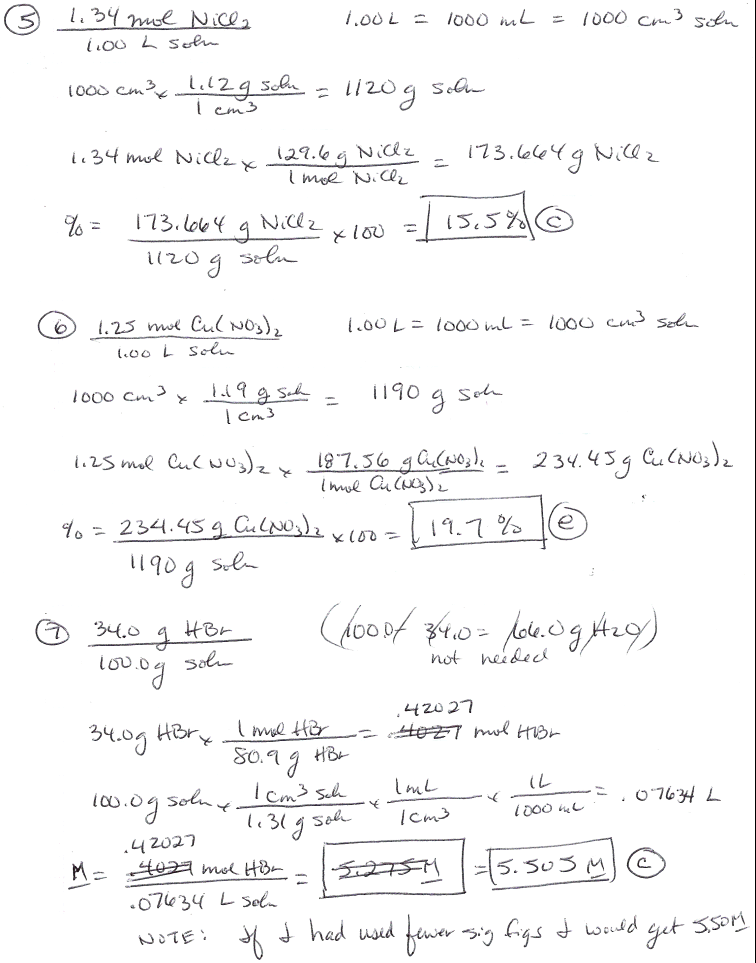 ⑤ 1.34 mol NiCl2 / 1.00 L soln    1.00 L = 1000 mL = 1000 cm3 soln
1000 cm3 × 1.12 g soln / 1 cm3 = 1120 g soln
1.34 mol NiCl2 × 129.6 g NiCl2 / 1 mol NiCl2 = 173.664 g NiCl2
% = 173.664 g NiCl2 / 1120 g soln × 100 = 15.5% ⓒ
⑥ 1.25 mol Cu(NO3)2 / 1.00 L soln    1.00 L = 1000 mL = 1000 cm3 soln
1000 cm3 × 1.19 g soln / 1 cm3 = 1190 g soln
1.25 mol Cu(NO3)2 × 187.56 g Cu(NO3)2 / 1 mol Cu(NO3)2 = 234.45 g Cu(NO3)2
% = 234.45 g Cu(NO3)2 / 1190 g soln × 100 = 19.7 % ⓔ
⑦ 34.0 g HBr / 100.0 g soln    (100.0 - 34.0 = 66.0 g H2O)
not needed
.42027
34.0 g HBr × 1 mol HBr / 80.9 g HBr = .4027 mol HBr
100.0 g soln × 1 cm3 soln / 1.31 g soln × 1 mL / 1 cm3 × 1 L / 1000 mL = .07634 L
.42027
M = .4027 mol HBr / .07634 L soln = 5.275 M = 5.505 M ⓒ
NOTE: If I had used fewer sig figs I would get 5.50 M